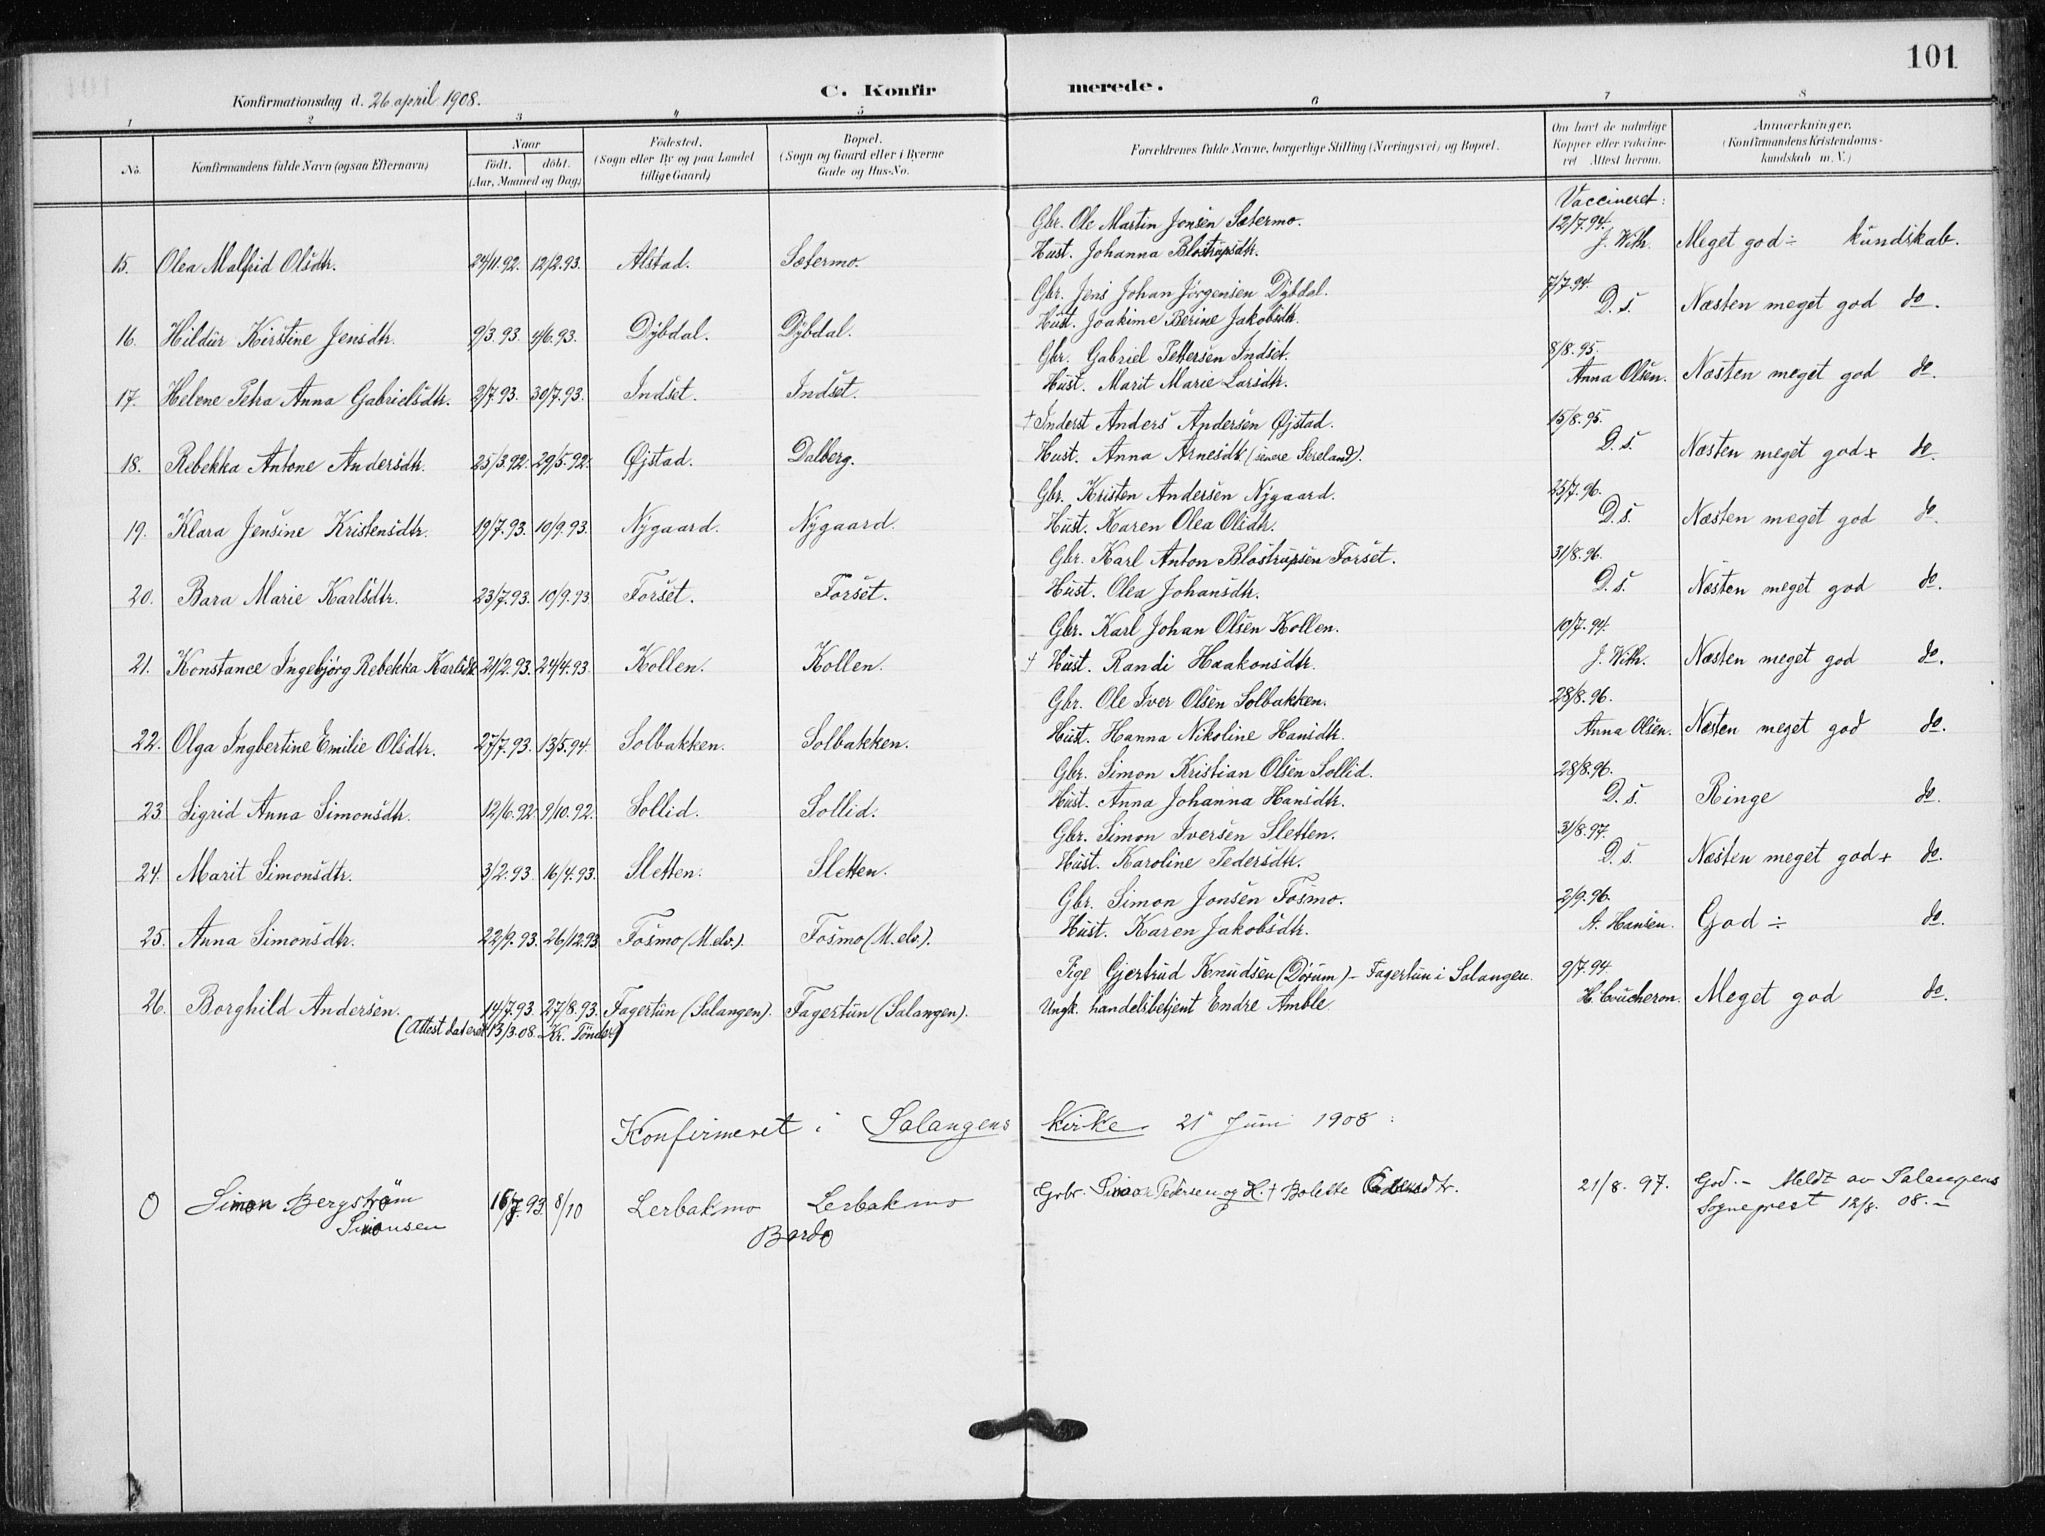 101
Konfirmationsdag d. 26 april 1908.
C. Konfir merede.
1 2 3 4 5 6 7 8
No.
Konfirmandens fulde Navn (ogsaa Efternavn)
Naar
født. døbt.
(Aar, Maaned og Dag)
Fødested.
(Sogn eller By og paa Landet
tillige Gaard)
Bopæl.
(Sogn og Gaard eller i Byerne
Gade og Hus-No.
Forældrenes fulde Navne, borgerlige Stilling (Næringsvei) og Bopæl.
Om havt de naturlige
Kopper eller vaccine-
ret Attest herom.
Anmærkninger.
(Konfirmandens Kristendoms-
kundskab m. V.)
Vaccineret:
Gbr. Ole Martin Jensen Sætermo. 12/7.94.
15. Olea Malfrid Olsdtr. 24/11.92. 12/2.93. Alstad. Sætermo. Hust. Johanna Blostrupsdtr. J. With. Meget god ÷ kundskab.
Gbr. Jens Johan Jørgensen Dybdal. 7/7.94.
16. Hildur Kirstine Jensdtr. 9/3.93. 4/6.93. Dybdal. Dybdal. Hust. Joakime Berine Jakobsdtr. D. s. Næsten meget god do.
Gbr. Gabriel Pettersen Indset. 8/8.95.
17. Helene Petra Anna Gabrielsdtr. 2/7.93. 30/7.93. Indset. Indset. Hust. Marit Marie Larsdtr. Anna Olsen. Næsten meget god do.
† Inderst Anders Andersen Øjstad. 15/8.95.
18. Rebekka Antone Andersdtr. 25/3.92. 29/5.92. Øjstad. Dalberg. Hust. Anna Arnesdtr (senere Søreland). D. s. Næsten meget god + do.
Gbr. Kristen Andersen Nygaard. 25/7.96.
19. Klara Jensine Kristensdtr. 19/7.93. 10/9.93. Nygaard. Nygaard. Hust. Karen Olea Olsdtr. D. s. Næsten meget god do.
Gbr. Karl Anton Blostrupsen Forset. 31/8.96.
20. Bara Marie Karlsdtr. 23/7.93. 10/9.93 Forset. Forset. Hust. Olea Johansdtr. D. s. Næsten meget god do.
Gbr. Karl Johan Olsen Kollen. 10/7.94.
21. Konstance Ingebjørg Rebekka Karlsdtr. 21/2.93. 24/4.93. Kollen. Kollen. † Hust. Randi Haakonsdtr. J. With. Næsten meget god do.
Gbr. Ole Iver Olsen Solbakken. 28/8.96.
22. Olga Ingbertine Emilie Olsdtr. 27/7.93. 13/5.94. Solbakken. Solbakken. Hust. Hanna Nikoline Hansdtr. Anna Olsen. Næsten meget god do.
Gbr. Simon Kristian Olsen Sollid. 28/8.96.
23 Sigrid Anna Simonsdtr. 12/6.92. 9/10.92. Sollid. Sollid. Hust. Anna Johanna Hansdtr. D. s. Ringe do.
Gbr. Simon Iversen Sletten. 31/8.97.
24. Marit Simonsdtr. 3/2.93. 16/4.93. Sletten. Sletten. Hust. Karoline Pedersdtr. D. s. Næsten meget god + do.
Gbr. Simon Jonsen Fosmo. 2/9.96.
25. Anna Simonsdtr. 22/9.93. 26/12.93. Fosmo (M.elv.). Fosmo (M.elv.). Hust. Karen Jakobsdtr. A. Hansen. God ÷ do.
Pige Gjertrud Knudsen (Dørum) – Fagertun i Salangen. 9/7.94.
26. Borghild Andersen. 14/7.93. 27/8.93. Fagertun (Salangen). Fagertun (Salangen). Ungk. handelsbetjent Endre Amble. H. Coucheron. Meget god do.
(Attest dateret 13/3.08. Kr. )
Konfirmeret i Salangens Kirke 21 Juni 1908.
0 Simon Bergstrøm 16/7.93 8/10 Lerbakmo Lerbakmo Grbr. Simon Pedersen og H. † Bolette 21/8.97. God. – Meldt av Salangens
Simonsen Bardo Sogneprest 12/8. 08. –